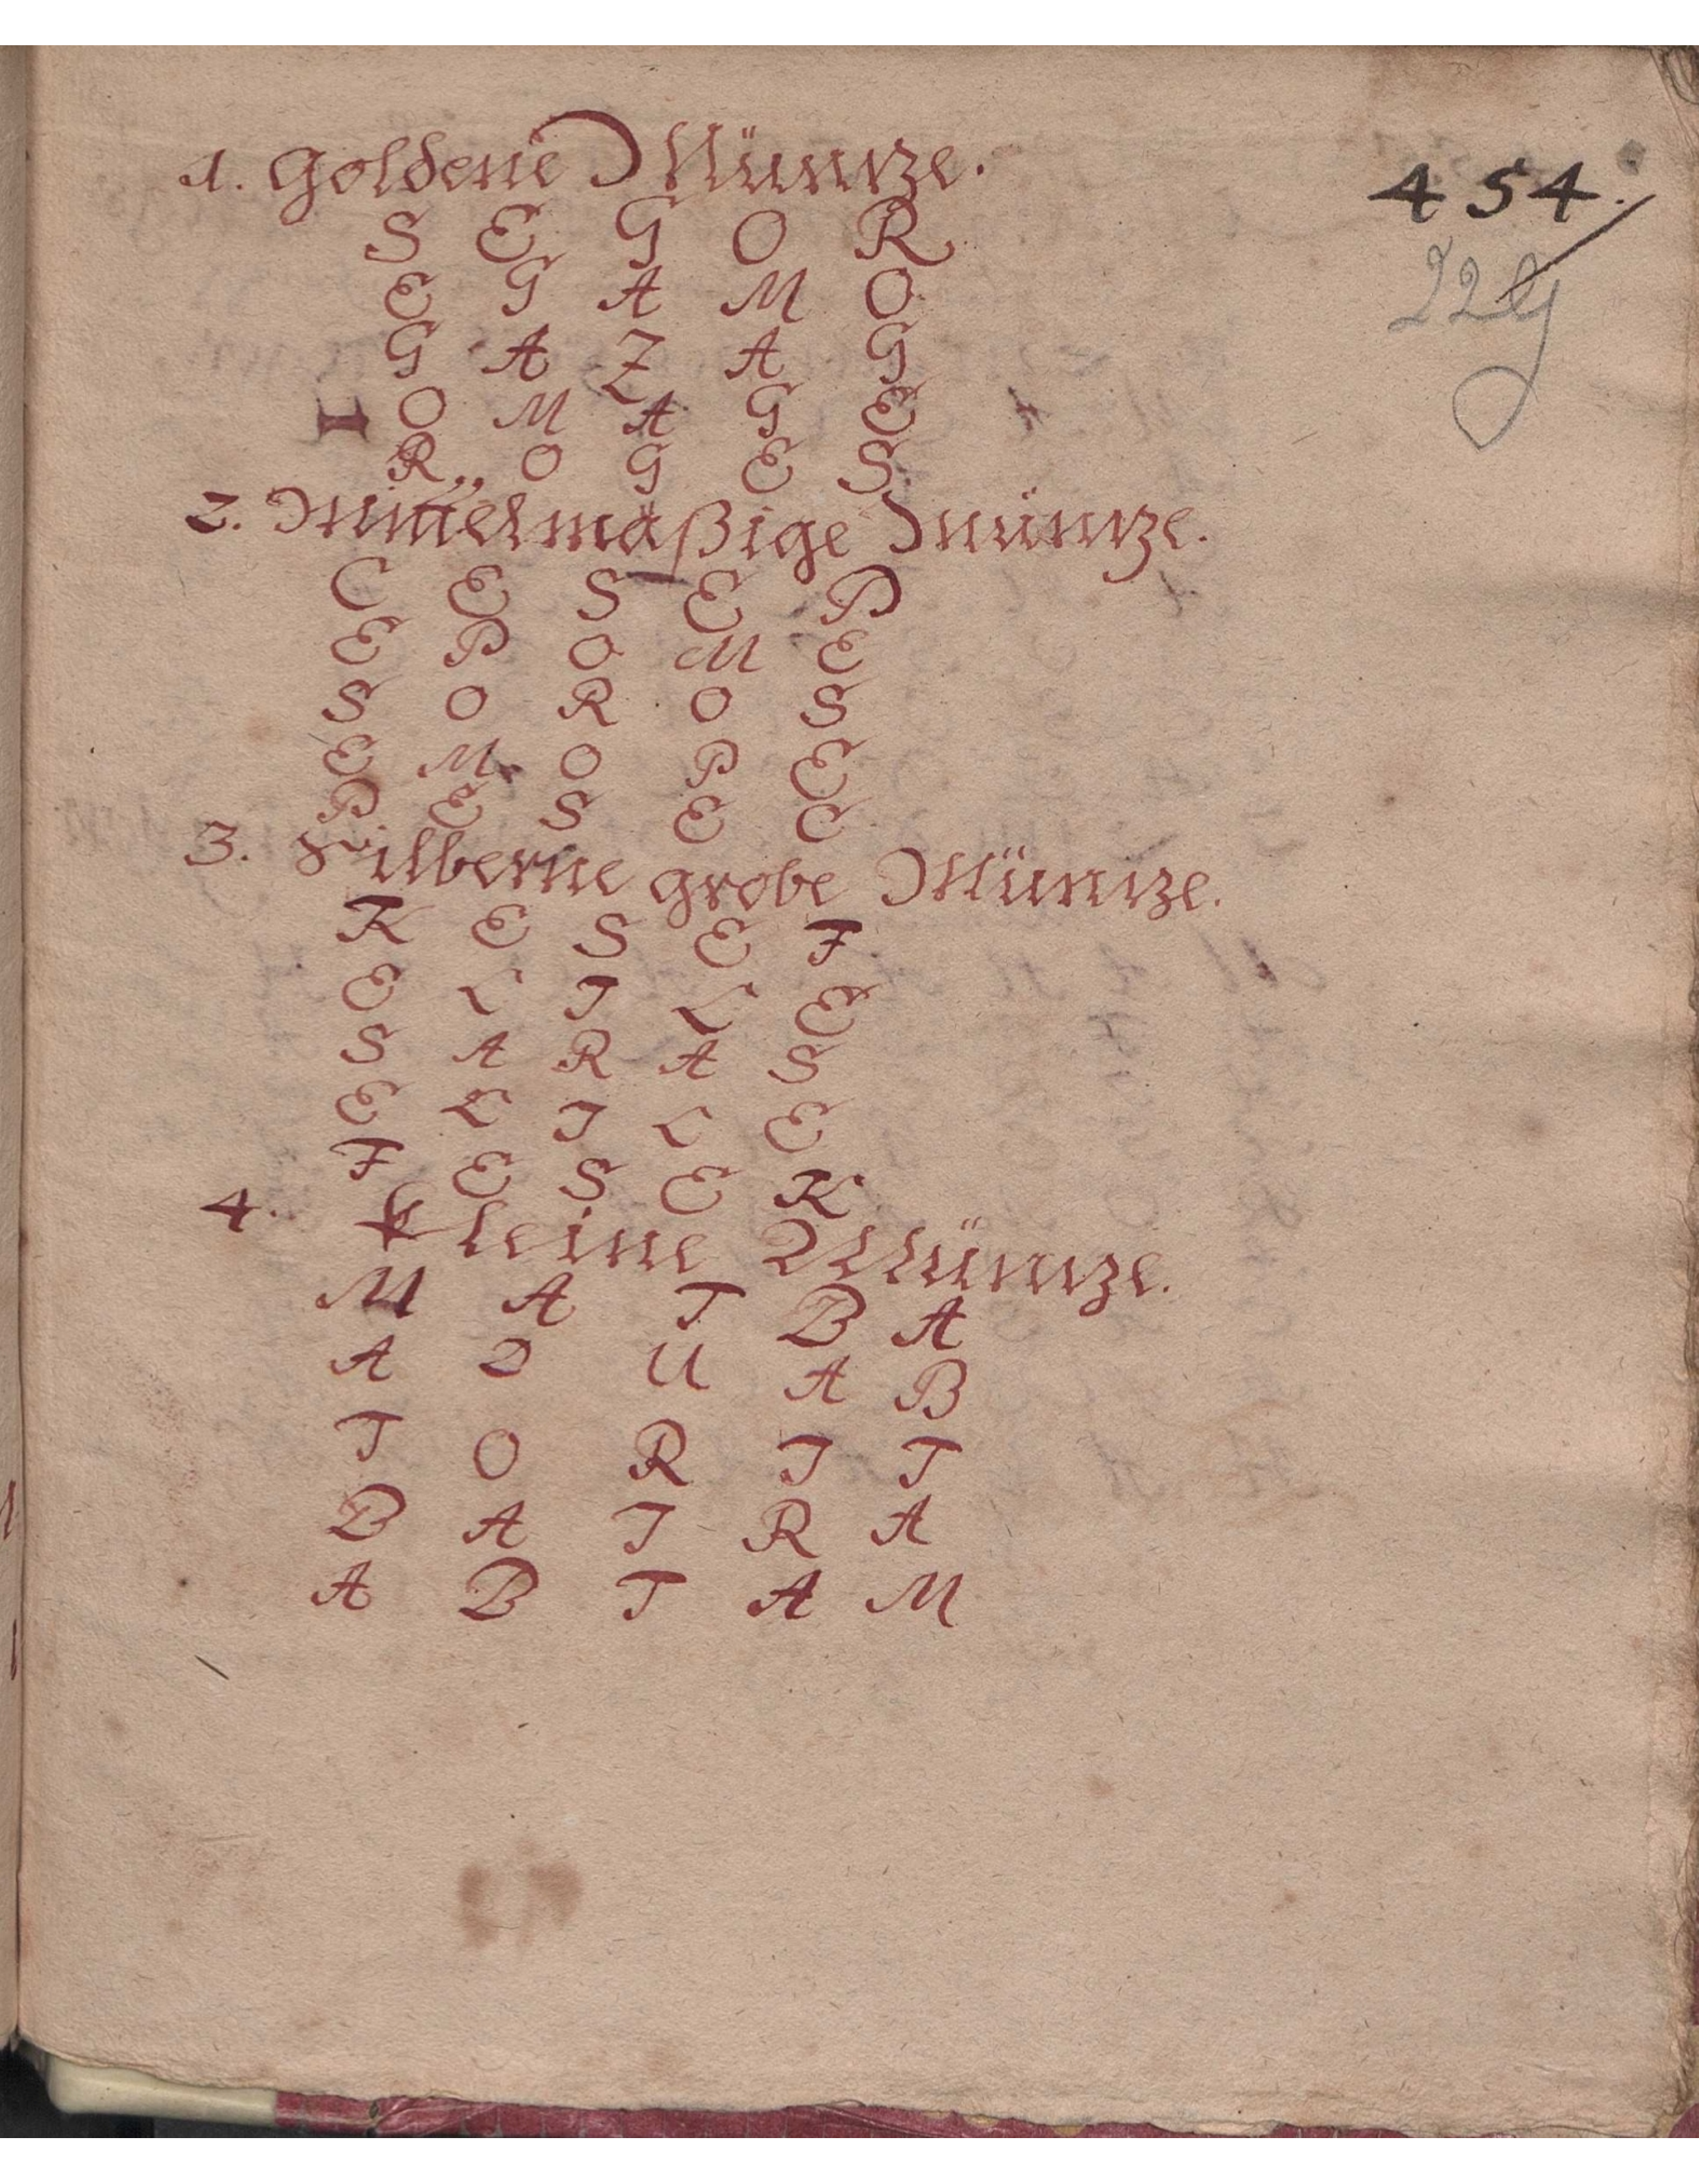 454.
229
1. Goldene Müntze.
S E G O R
E G A M O
G A Z A G
O M A G E
R O G E S
2. Mittelmäßige Müntze.
C E S E P
E P O M E
S O R O S
E M O P E
P E S E C
3. Silberne grobe Müntze.
K E S E F
E L I L E
S A R A S
E L I L E
F E S E K
4. Kleine Müntze.
M A T B A
A O U A B
T O R I T
B A I R A
A B T A M